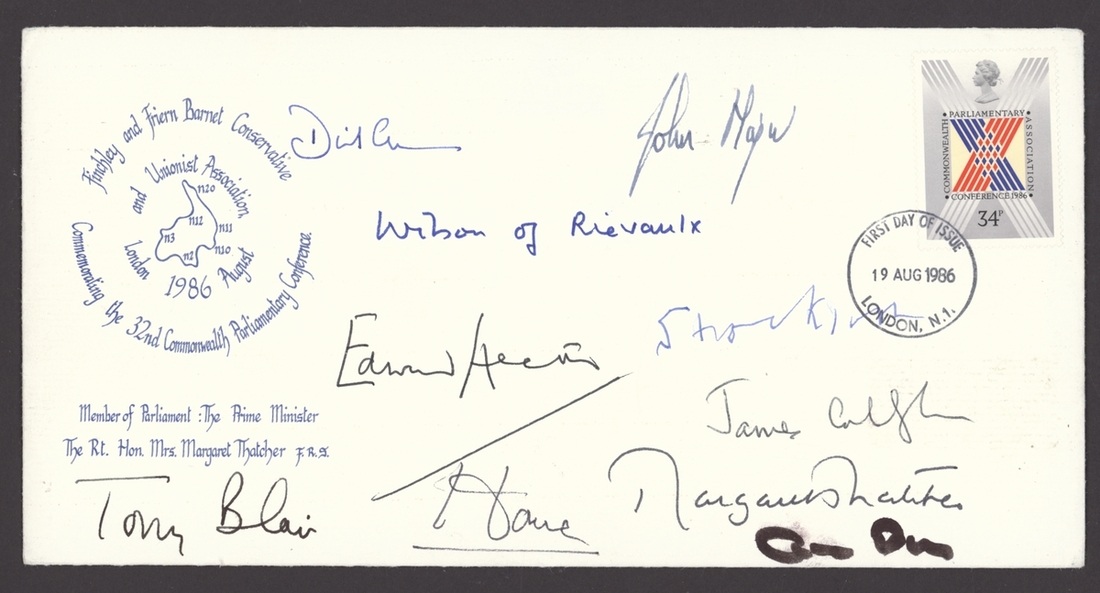 Finchley and Friern Barnet Conservative
and Unionist Association
n20
n12
n3
n11
n2
n10
London
1986
August
Commemorating the 32nd Commonwealth Parliamentary Conference.
John Major
COMMONWEALTH
PARLIAMENTARY
ASSOCIATION
CONFERENCE 1986
34P
Wilson of Rievaulx
FIRST DAY OF ISSUE
19 AUG 1986
LONDON, N.1.
Edward Heath
Stockton
James Callaghan
Member of Parliament : The Prime Minister
The Rt. Hon. Mrs. Margaret Thatcher F.R.S.
Tony Blair
Home
Margaret Thatcher